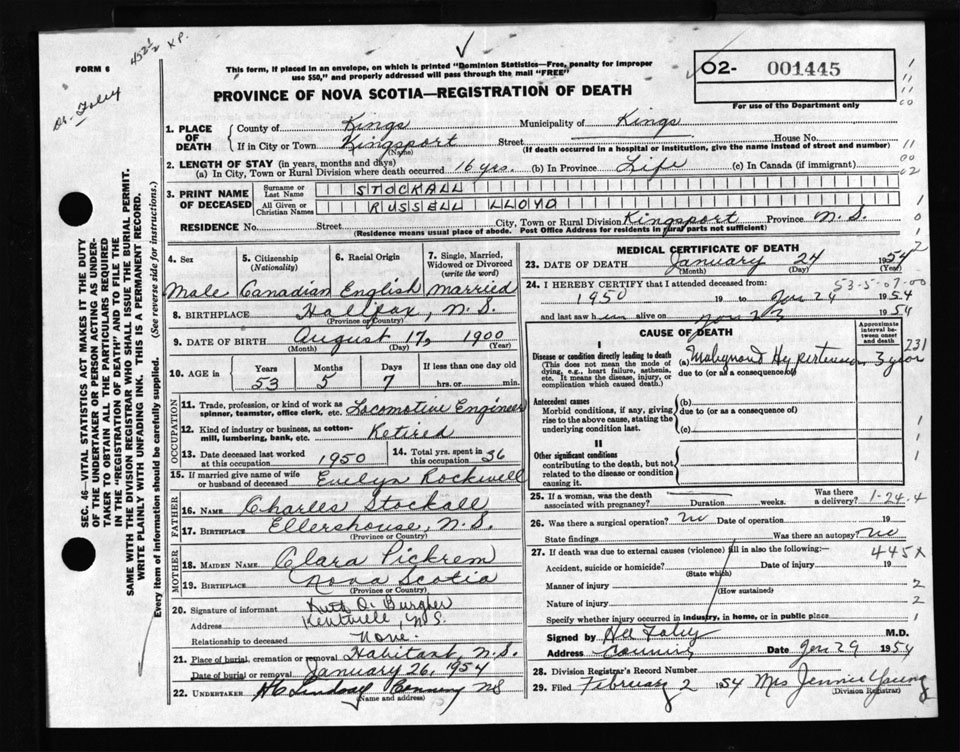 452 1/2 X P.
FORM 6
This form, if placed in an envelope, on which is printed "Dominion Statistics—Free, penalty for improper
use $50," and properly addressed will pass through the mail "FREE"
02- 001445
For use of the Department only
Dr. Foley
PROVINCE OF NOVA SCOTIA—REGISTRATION OF DEATH
SEC. 46—VITAL STATISTICS ACT MAKES IT THE DUTY
OF THE UNDERTAKER OR PERSON ACTING AS UNDER-
TAKER TO OBTAIN ALL THE PARTICULARS REQUIRED
IN THE "REGISTRATION OF DEATH" AND TO FILE THE
SAME WITH THE DIVISION REGISTRAR WHO SHALL ISSUE THE BURIAL PERMIT.
WRITE PLAINLY WITH UNFADING INK. THIS IS A PERMANENT RECORD.
Every item of information should be carefully supplied. (See reverse side for instructions.)
1. PLACE OF DEATH County of Kings Municipality of Kings
If in City or Town Kingsport Street House No.
(Name) (If death occurred in a hospital or institution, give the name instead of street and number)
2. LENGTH OF STAY (in years, months and days)
(a) In City, Town or Rural Division where death occurred 16 yrs. (b) In Province Life (c) In Canada (if immigrant)
3. PRINT NAME OF DECEASED Surname or Last Name STOCKALL
All Given or Christian Names RUSSELL LLOYD
RESIDENCE No. Street City, Town or Rural Division Kingsport Province N.S.
(Residence means usual place of abode. Post Office Address for residents in rural parts not sufficient)
4. Sex 5. Citizenship (Nationality) 6. Racial Origin 7. Single, Married, Widowed or Divorced (write the word)
Male Canadian English married
8. BIRTHPLACE Halifax, N.S.
(Province or Country)
9. DATE OF BIRTH August 17, 1900
(Month) (Day) (Year)
10. AGE in Years Months Days If less than one day old
53 5 7 hrs. or min.
OCCUPATION
11. Trade, profession, or kind of work as
spinner, teamster, office clerk, etc. Locomotive Engineer
12. Kind of industry or business, as cotton-
mill, lumbering, bank, etc. Retired
13. Date deceased last worked at this occupation 1950 14. Total yrs. spent in this occupation 36
15. If married give name of wife or husband of deceased Evelyn Rockwell
FATHER
16. NAME Charles Stockall
17. BIRTHPLACE Ellershouse, N.S.
(Province or Country)
MOTHER
18. MAIDEN NAME Clara Pickrem
19. BIRTHPLACE Nova Scotia
(Province or Country)
20. Signature of informant Ruth O. Burgher
Address Kentville, N.S.
Relationship to deceased None.
21. Place of burial, cremation or removal Habitant, N.S.
Date of burial or removal January 26, 1954
22. UNDERTAKER H C Lindsay Canning NS
(Name and address)
MEDICAL CERTIFICATE OF DEATH
23. DATE OF DEATH January 24 1954
(Month) (Day) (Year)
24. I HEREBY CERTIFY that I attended deceased from: 53-5-07-00
1950 19 to Jan 24 1954
and last saw him alive on Jan 23 1954
CAUSE OF DEATH
Approximate interval between onset and death
I
Disease or condition directly leading to death (a) Malignant Hypertension 3 years 231
(This does not mean the mode of
dying, e.g., heart failure, asthenia,
etc. It means the disease, injury, or
complication which caused death.)
due to (or as a consequence of)
Antecedent causes (b)
Morbid conditions, if any, giving
rise to the above cause, stating the
underlying condition last.
due to (or as a consequence of)
(c)
II
Other significant conditions
contributing to the death, but not
related to the disease or condition
causing it.
25. If a woman, was the death associated with pregnancy? Duration weeks. Was there a delivery? 1-24.4
26. Was there a surgical operation? no Date of operation 19
State findings Was there an autopsy? no
27. If death was due to external causes (violence) fill in also the following:— 445X
Accident, suicide or homicide? Date of injury 19
(State which)
Manner of injury 2
(How sustained)
Nature of injury 2
Specify whether injury occurred in industry, in home, or in public place 1
Signed by Foley M.D.
Address Canning Date Jan 29 1954
28. Division Registrar's Record Number
29. Filed February 2 1954 Mrs Jennie Young
(Division Registrar)